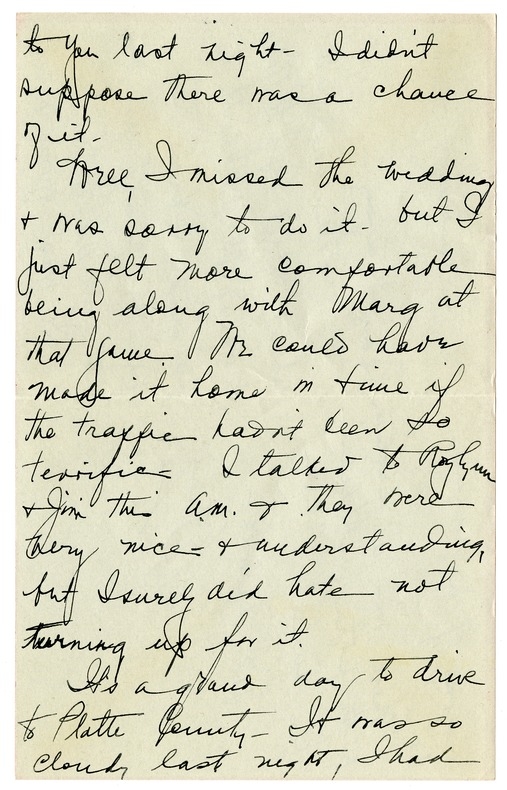 to you last night - I didn't
suppose there was a chance
of it.
Well, I missed the wedding
& was sorry to do it - but I
just felt more comfortable
being along with Marg at
that game. We could have
made it home in time if
the traffic hadn't been so
terrific - I talked to Roylynn
& Jim this a.m. & they were
very nice - & understanding,
but I surely did hate not
turning up for it.
It's a grand day to drive
to Platte County - It was so
cloudy last night, I had